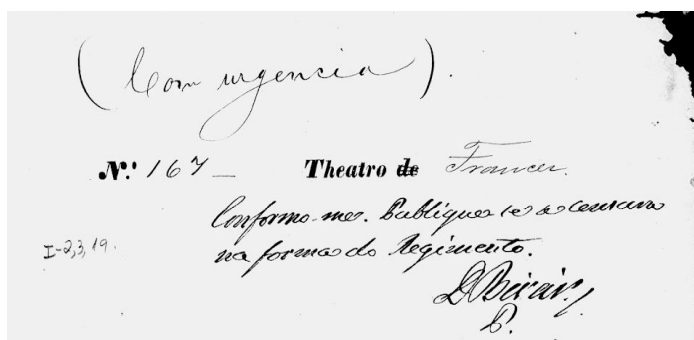 (Com urgencia).
N.º 167 — Theatro de Francez.
Conformo-me. Publique-se a censura
na forma do Regimento.
I-2,3,19.
P.